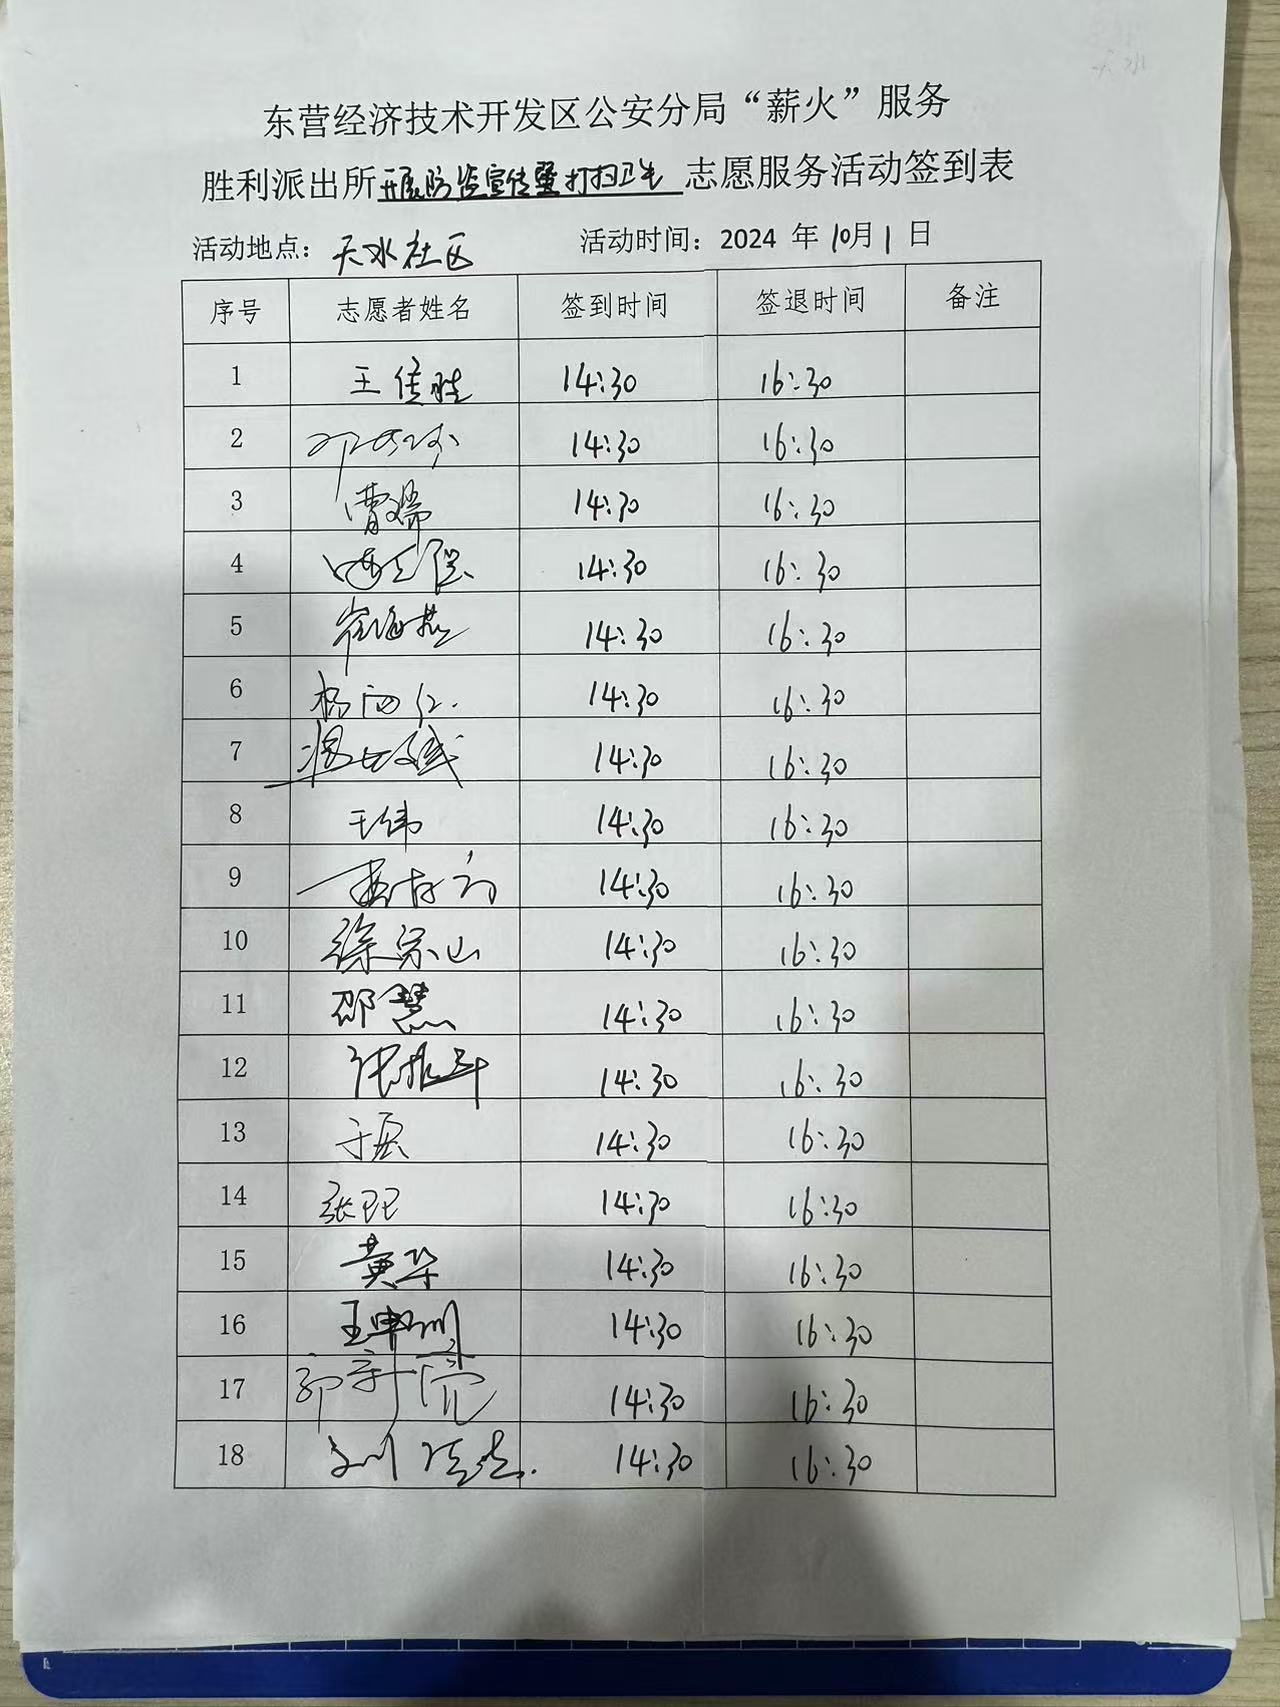 东营经济技术开发区公安分局“薪火”服务
胜利派出所开展防盗宣传暨打扫卫生志愿服务活动签到表
活动地点：天水社区 活动时间：2024 年 10月1 日
序号 志愿者姓名 签到时间 签退时间 备注
1 王佳胜 14:30 16:30
2 14:30 16:30
3 曹瑞 14:30 16:30
4 14:30 16:30
5 崔海燕 14:30 16:30
6 杨 14:30 16:30
7 14:30 16:30
8 王伟 14:30 16:30
9 14:30 16:30
10 徐宗山 14:30 16:30
11 邵慧 14:30 16:30
12 张振军 14:30 16:30
13 于辰 14:30 16:30
14 张 14:30 16:30
15 黄华 14:30 16:30
16 王申川 14:30 16:30
17 郭新亮 14:30 16:30
18 刘 14:30 16:30